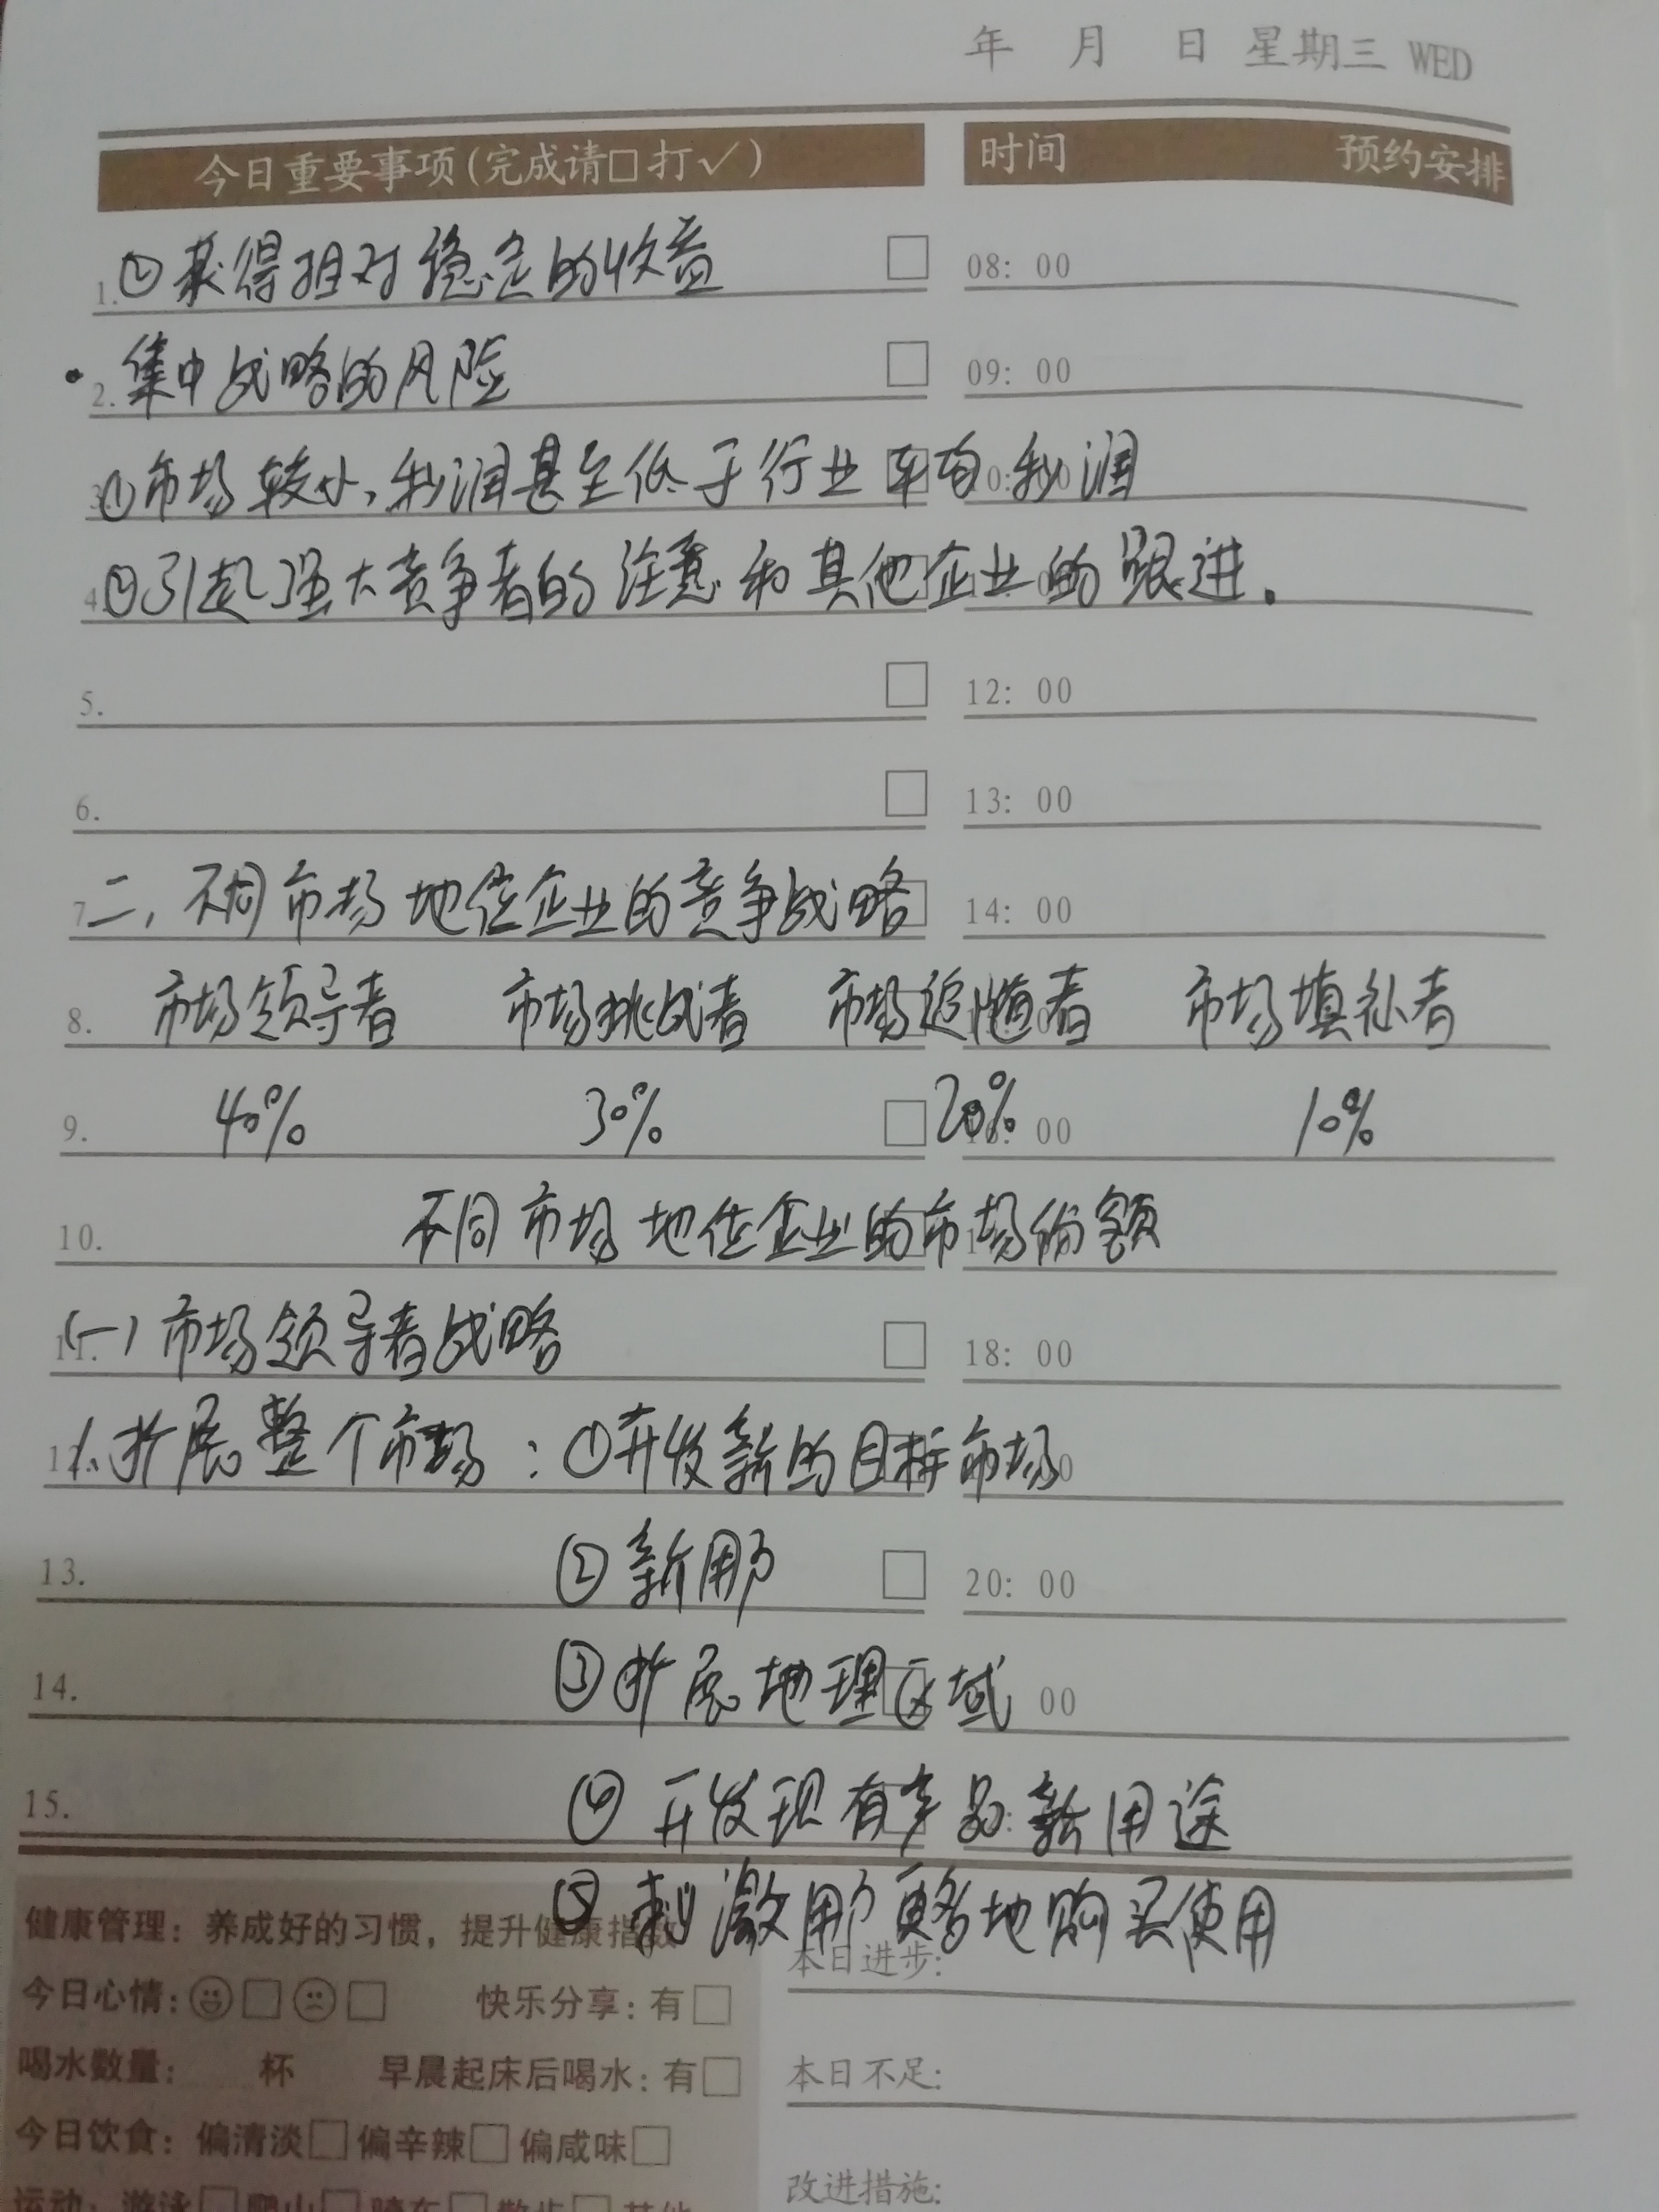 年 月 日 星期三 WED
今日重要事项(完成请□打√) 时间 预约安排
1. ②获得相对稳定的收益 □ 08: 00
2. ·集中战略的风险 □ 09: 00
3. ①市场较小,利润甚至低于行业平均利润
4. ②引起强大竞争者的注意和其他企业的跟进.
5. □ 12: 00
6. □ 13: 00
7. 二,不同市场地位企业的竞争战略 □ 14: 00
8. 市场领导者 市场挑战者 市场追随者 市场填补者
9. 40% 30% □ 20% 16: 00 10%
10. 不同市场地位企业的市场份额
11. (一)市场领导者战略 □ 18: 00
12. 1.扩展整个市场:①开发新的目标市场
13. ②新用户 □ 20: 00
14. ③扩展地理区域 00
15. ④开发现有产品新用途
⑤刺激用户更多地购买使用
健康管理:养成好的习惯,提升健康指数
本日进步:
今日心情:□□ 快乐分享:有□
喝水数量: 杯 早晨起床后喝水:有□
本日不足:
今日饮食:偏清淡□偏辛辣□偏咸味□
改进措施:
运动:游泳□爬山□骑车□散步□其他